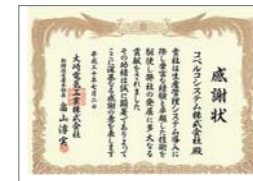 感謝状
コベルコシステム株式会社殿
貴社は生産管理システム導入に
際し豊富な経験と卓越した技術を
駆使し弊社の発展に多大なる
貢献をされました
その功績は誠に顕著でありよって
ここに深甚なる感謝の意を表します
平成三十年七月二日
大崎電気工業株式会社